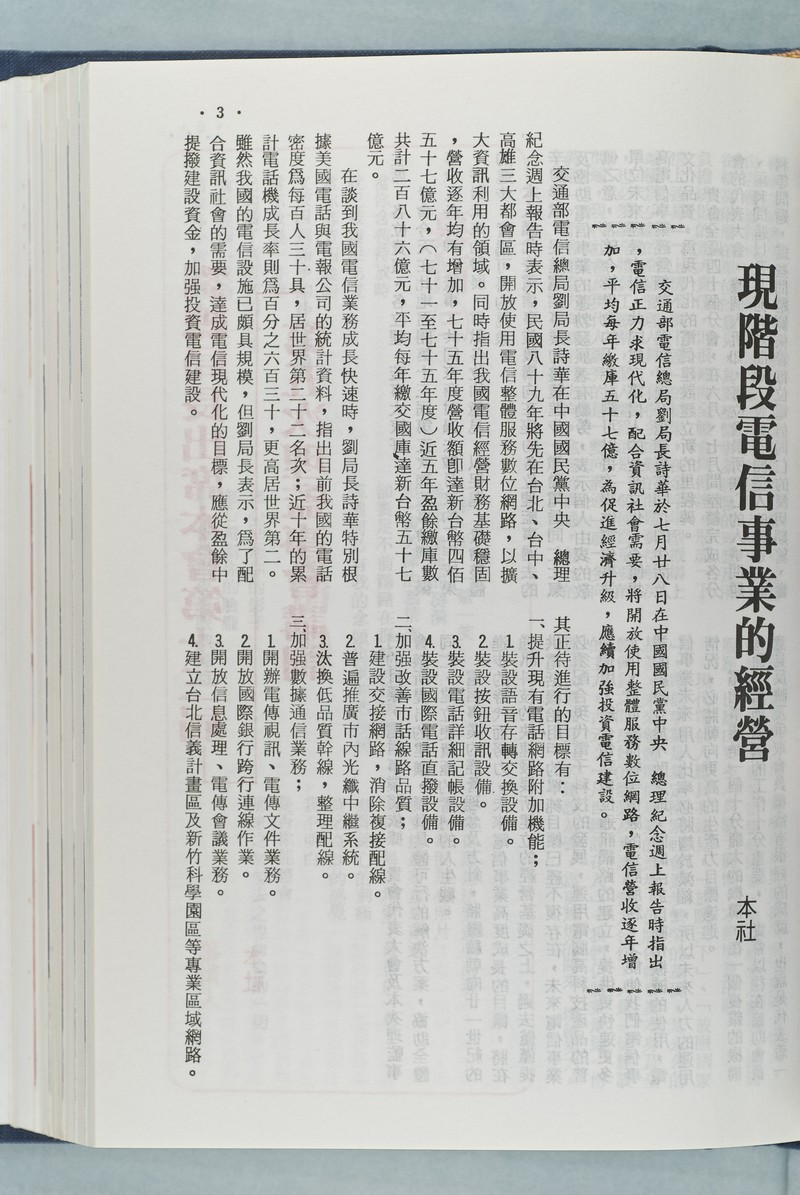 現階段電信事業的經營
本社
交通部電信總局劉局長詩華於七月廿八日在中國國民黨中央　總理紀念週上報告時指出
，電信正力求現代化，配合資訊社會需要，將開放使用整體服務數位網路，電信營收逐年增
加，平均每年繳庫五十七億，為促進經濟升級，應續加強投資電信建設。
交通部電信總局劉局長詩華在中國國民黨中央　總理
紀念週上報告時表示，民國八十九年將先在台北、台中、
高雄三大都會區，開放使用電信整體服務數位網路，以擴
大資訊利用的領域。同時指出我國電信經營財務基礎穩固
，營收逐年均有增加，七十五年度營收額即達新台幣四佰
五十七億元，（七十一至七十五年度）近五年盈餘繳庫數
共計二百八十六億元，平均每年繳交國庫達新台幣五十七
億元。
在談到我國電信業務成長快速時，劉局長詩華特別根
據美國電話與電報公司的統計資料，指出目前我國的電話
密度爲每百人三十具，居世界第二十二名次；近十年的累
計電話機成長率則爲百分之六百三十，更高居世界第二。
雖然我國的電信設施已頗具規模，但劉局長表示，爲了配
合資訊社會的需要，達成電信現代化的目標，應從盈餘中
提撥建設資金，加强投資電信建設。
其正待進行的目標有：
一、提升現有電話網路附加機能；
1.裝設語音存轉交換設備。
2.裝設按鈕收訊設備。
3.裝設電話詳細記帳設備。
4.裝設國際電話直撥設備。
二、加强改善市話線路品質；
1.建設交接網路，消除複接配線。
2.普遍推廣市內光纖中繼系統。
3.汰換低品質幹線，整理配線。
三、加强數據通信業務；
1.開辦電傳視訊、電傳文件業務。
2.開放國際銀行跨行連線作業。
3.開放信息處理、電傳會議業務。
4.建立台北信義計畫區及新竹科學園區等專業區域網路。
・3・